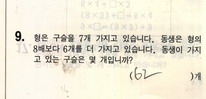 9. 형은 구슬을 7개 가지고 있습니다. 동생은 형의
8배보다 6개를 더 가지고 있습니다. 동생이 가지
고 있는 구슬은 몇 개입니까?
(62 )개